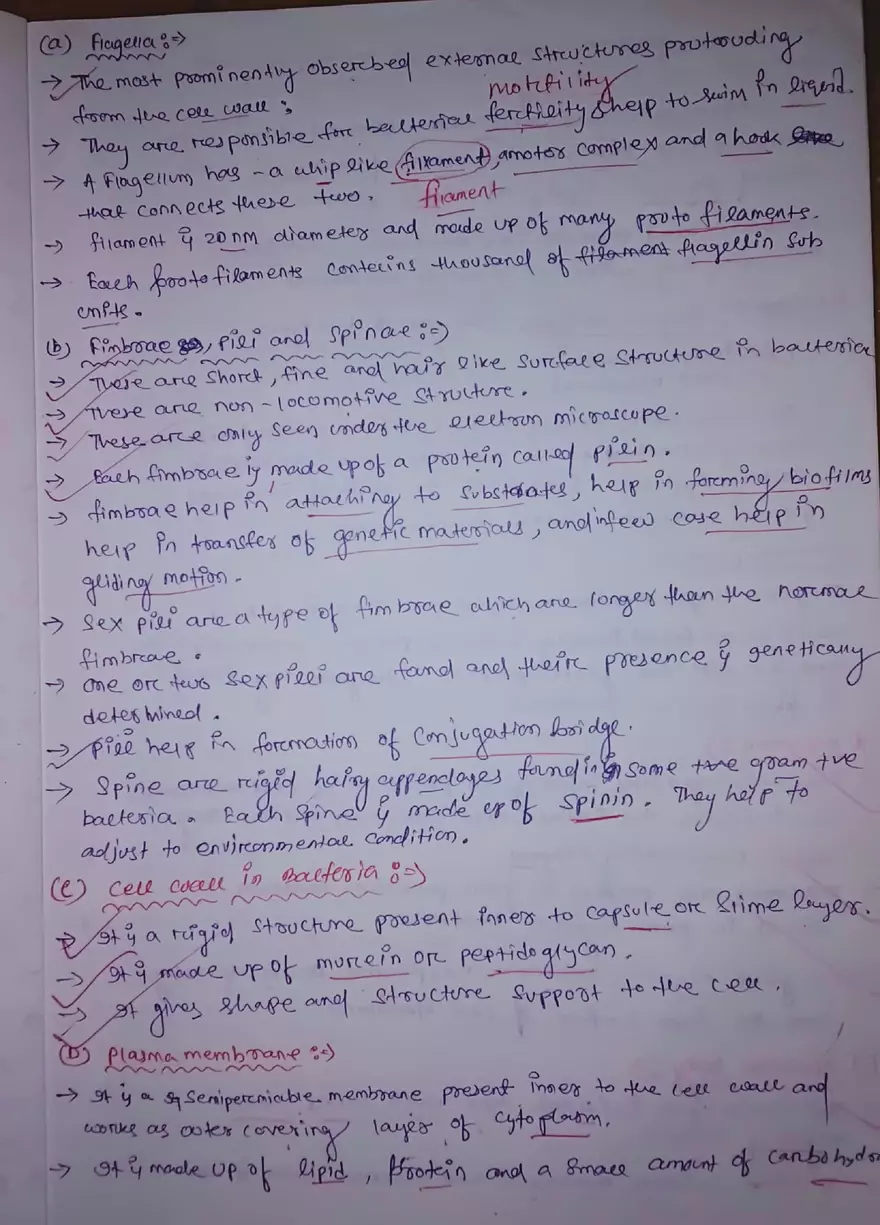 (a) Flagella :⇒
→ The most prominently obsercbed external structures protruding
from the cell wall ;
motility
→ They are responsible for bacterial fertility & help to swim in liquid.
→ A Flagellum has - a whip like filxament, amotor complex and a hook
that connects these two.
filament
→ filament is 20 nm diameter and made up of many proto filaments.
→ Each protofilaments contains thousand of filament flagellin sub
units.
(b) Fimbrae, pili and spinae :⇒
→ These are short, fine and hair like surface structure in bacteria
→ These are non-locomotive structure.
→ These are only seen under the electron microscope.
→ Each fimbrae is made up of a protein called pilin.
→ fimbrae help in attaching to substrates, help in forming biofilms
help in transfer of genetic materials, and infew case help in
gliding motion.
→ Sex pili are a type of fimbrae which are longer than the normal
fimbrae.
→ One or two sex pilli are found and their presence is genetically
determined.
→ Pili help in formation of conjugation bridge.
→ Spine are rigid hairy appendages found in some +ve gram +ve
bacteria. Each spine is made up of spinin. They help to
adjust to environmental condition.
(C) Cell wall in Bacteria :⇒
→ It is a rigid structure present inner to capsule or slime layer.
→ It is made up of murein or peptidoglycan.
→ It gives shape and structure support to the cell.
(D) Plasma membrane :⇒
→ It is a semipermiable membrane present inner to the cell wall and
works as outer covering layer of cytoplasm.
→ It is made up of lipid, protein and a small amount of carbohydr